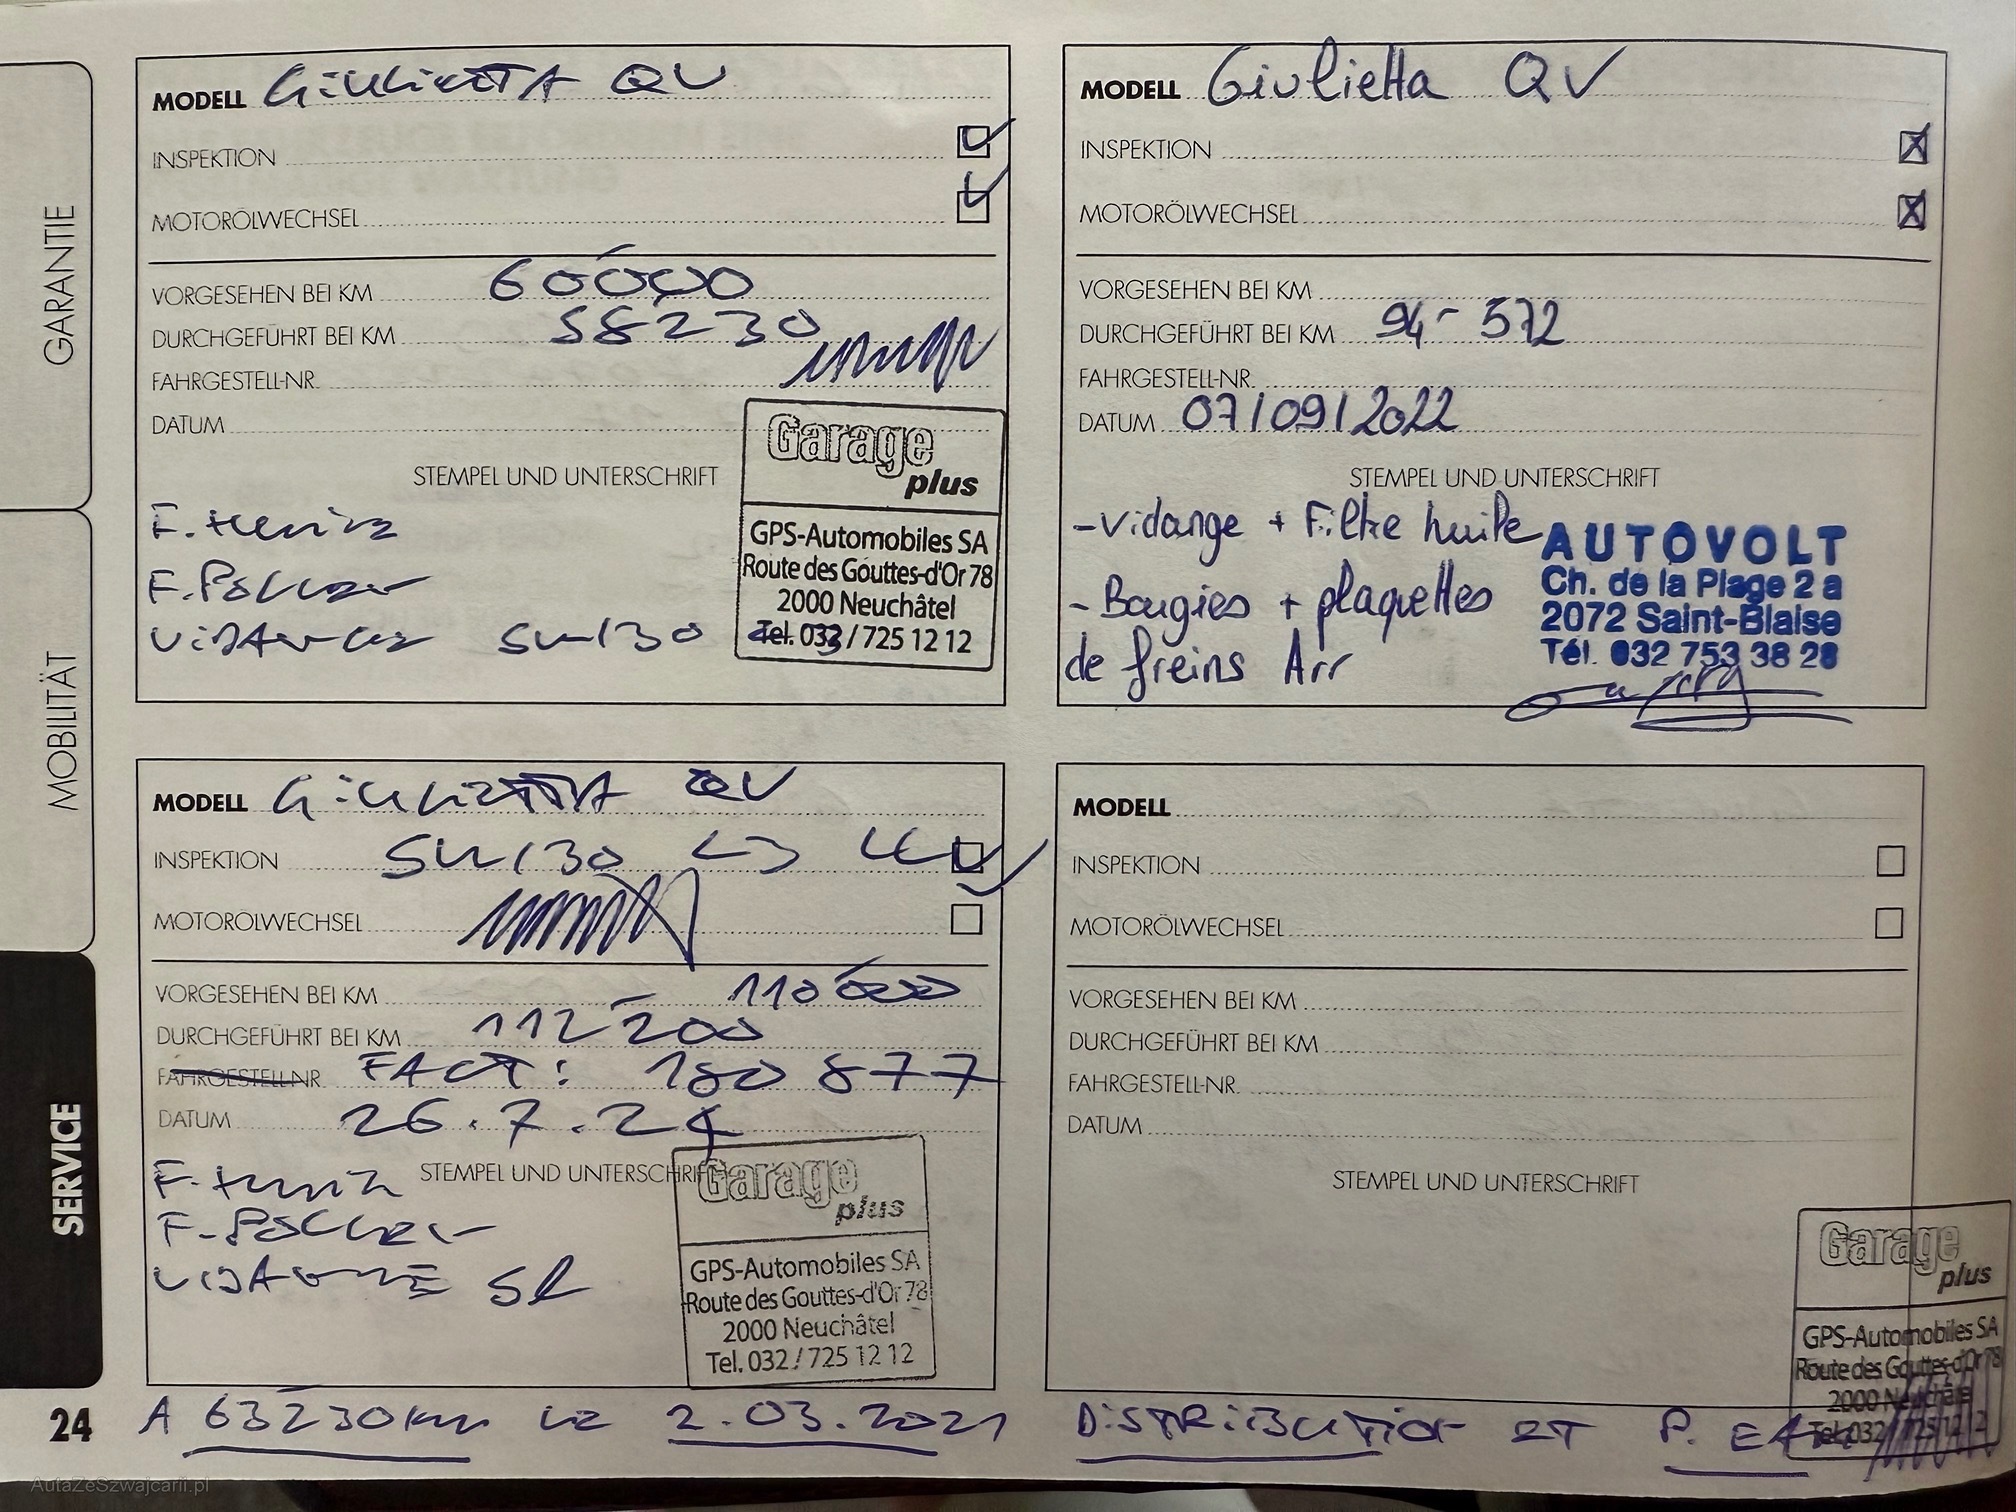 GARANTIE
MOBILITÄT
SERVICE
24
MODELL GiULiETTA QV
INSPEKTION
MOTORÖLWECHSEL
VORGESEHEN BEI KM 60'000
DURCHGEFÜHRT BEI KM 58230
FAHRGESTELL-NR.
DATUM
STEMPEL UND UNTERSCHRIFT
F.
F. Pollen
ViDANGE 5W/30
Garage
plus
GPS-Automobiles SA
Route des Gouttes-d'Or 78
2000 Neuchâtel
Tel. 032/725 12 12
MODELL Giulietta QV
INSPEKTION
MOTORÖLWECHSEL
VORGESEHEN BEI KM
DURCHGEFÜHRT BEI KM 94-572
FAHRGESTELL-NR.
DATUM 07/09/2022
STEMPEL UND UNTERSCHRIFT
-Vidange + Filtre huile
- Bougies + plaquettes
de freins Arr
AUTOVOLT
Ch. de la Plage 2 a
2072 Saint-Blaise
Tél. 032 753 38 28
MODELL GiULiETTA QV
INSPEKTION 5W/30
MOTORÖLWECHSEL
VORGESEHEN BEI KM 110'000
DURCHGEFÜHRT BEI KM 112'200
FAHRGESTELL-NR. FACT: 180 877
DATUM 26.7.24
STEMPEL UND UNTERSCHRIFT
F.
F. Pollen
ViDANGE 5l
Garage
plus
GPS-Automobiles SA
Route des Gouttes-d'Or 78
2000 Neuchâtel
Tel. 032/725 12 12
MODELL
INSPEKTION
MOTORÖLWECHSEL
VORGESEHEN BEI KM
DURCHGEFÜHRT BEI KM
FAHRGESTELL-NR.
DATUM
STEMPEL UND UNTERSCHRIFT
Garage
plus
GPS-Automobiles SA
Route des Gouttes-d'Or 78
2000 Neuchâtel
Tel. 032/725 12 12
A 63230 Km LE 2.03.2021 DiSTRiBUTioN ET P. EAU
AutaZeSzwajcarii.pl